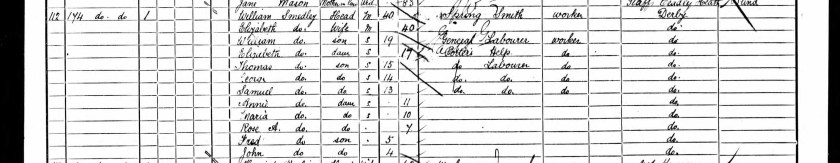 Jane Mason Mother in law Wid 83 Staff Dudley Heath Blind
112 174 do. do 1 William Smedley Head M 40 Spring Smith worker Derby
Elizabeth do. Wife M 40 do.
William do. son S 19 General Labourer worker do.
Elizabeth do. daur S 17 Help do do.
Thomas do. son S 15 do Labourer do do.
do. do S 14 do. do. do do.
Samuel do. do S 13 do. do. do do.
Annie do. daur S 11 do.
Maria do. do S 10 do.
Rose A. do. do 7 do.
Fred do. son 5 do.
John do. do 4 do.